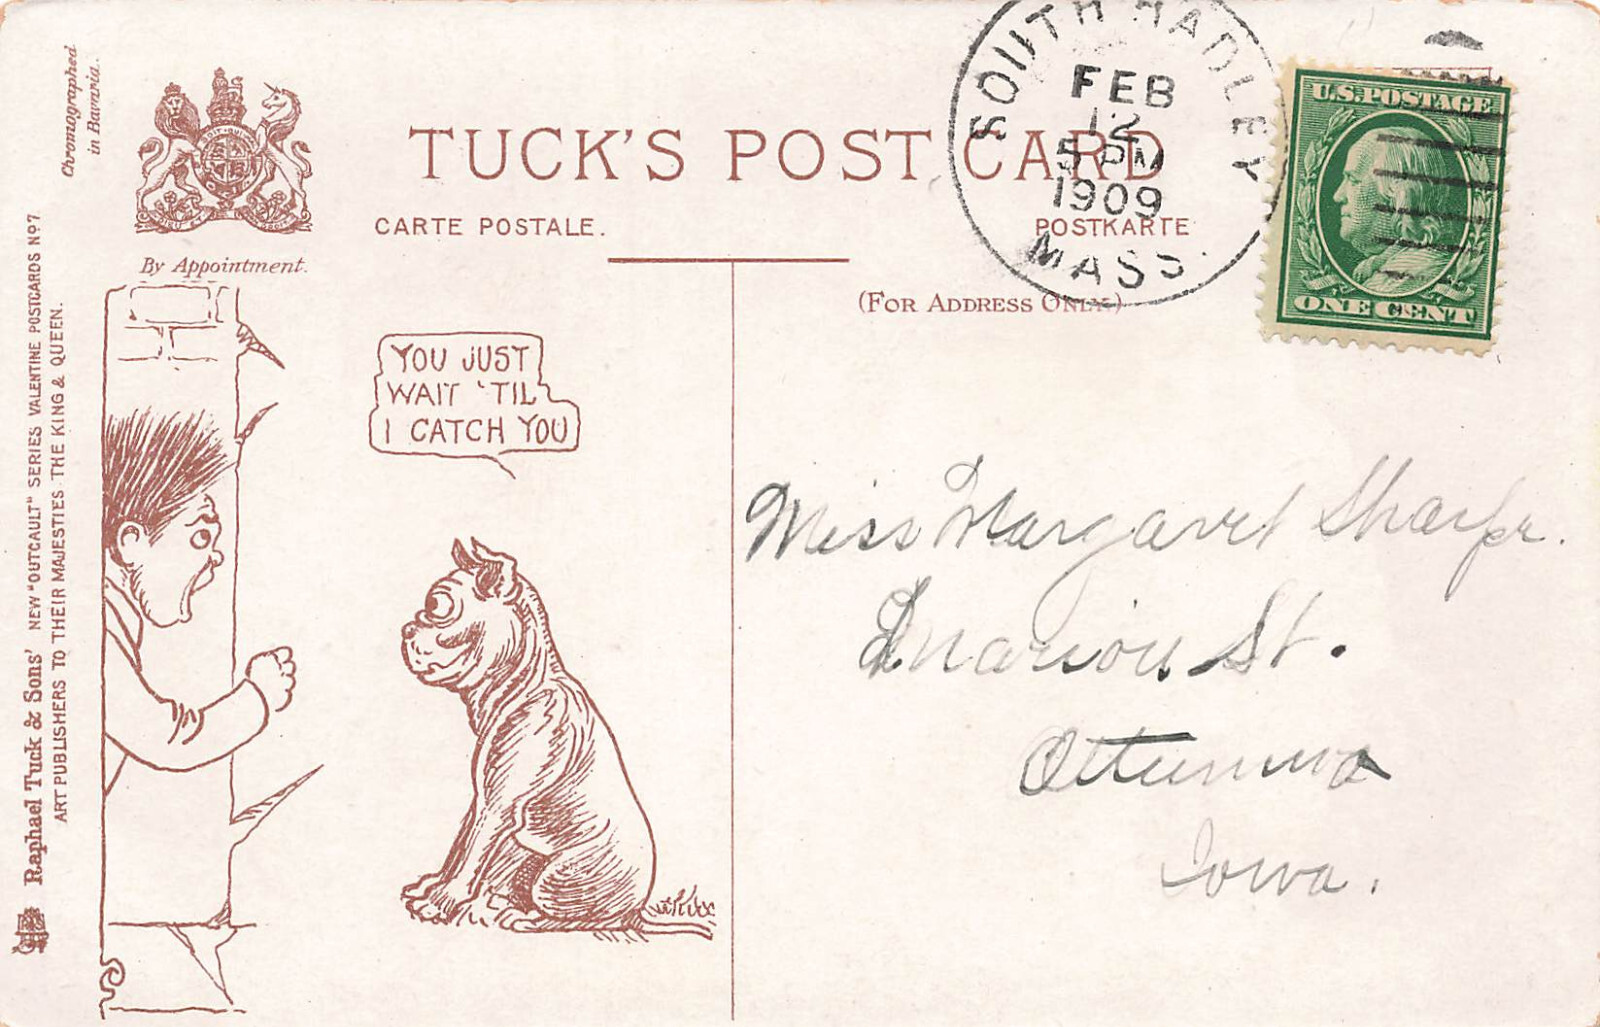 Chromographed
in Bavaria.
By Appointment.
TUCK'S POST CARD
CARTE POSTALE.
POSTKARTE
(FOR ADDRESS ONLY.)
SOUTH HADLEY
FEB
12
5 PM
1909
MASS.
U.S. POSTAGE
ONE CENT
YOU JUST
WAIT 'TIL
I CATCH YOU
Miss Margaret Sharpe.
Marion St.
Ottumwa
Iowa.
Raphael Tuck & Sons' NEW "OUTCAULT" SERIES VALENTINE POSTCARDS Nº 7
ART PUBLISHERS TO THEIR MAJESTIES THE KING & QUEEN.